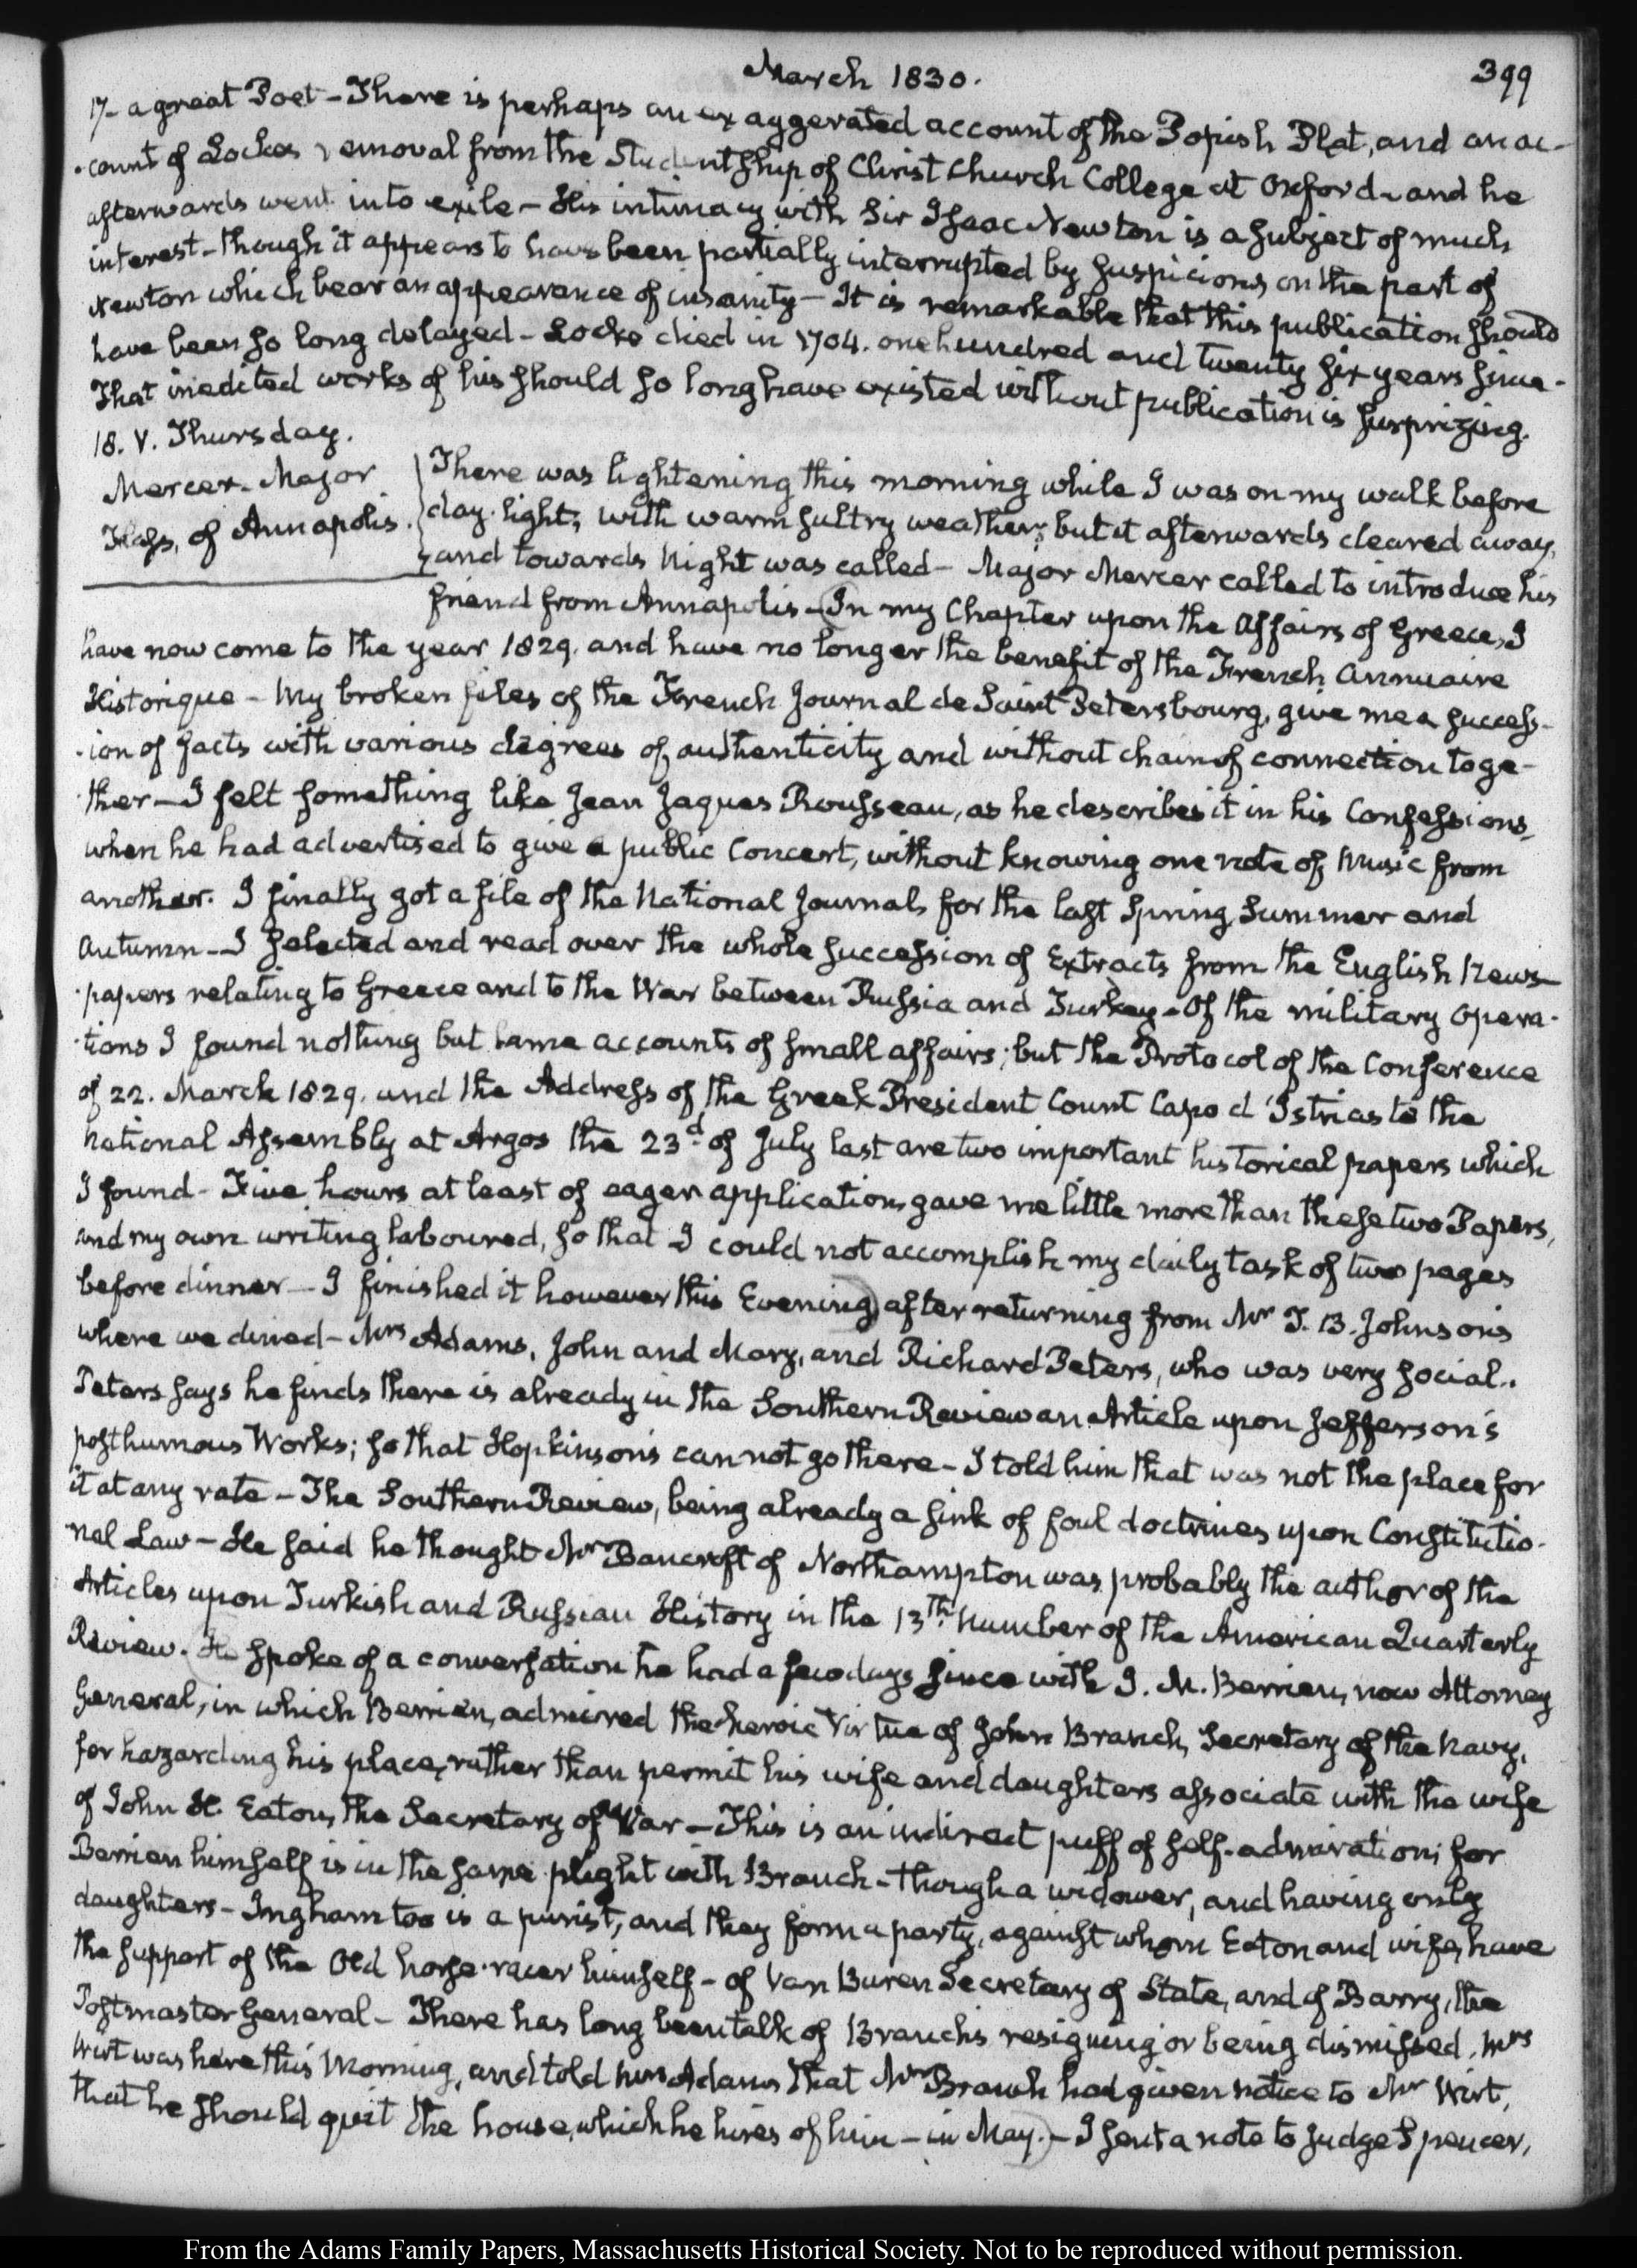 March 1830.
399
17- a great Poet - There is perhaps an exaggerated account of the Popish Plot, and an ac-
-count of Lockes removal from the Studentship of Christ Church College at Oxford - and he
afterwards went into exile - His intimacy with Sir Isaac Newton is a subject of much
interest - though it appears to have been partially interrupted by suspicions on the part of
Newton which bear an appearance of insanity - It is remarkable that this publication should
have been so long delayed - Locke died in 1704. one hundred and twenty six years since.
That inedited works of his should so long have existed without publication is surprizing.
18. V. Thursday.
Mercer. Major
of Annapolis.
There was lightening this morning while I was on my walk before
day-light; with warm sultry weather; but it afterwards cleared away,
and towards Night was called - Major Mercer called to introduce his
friend from Annapolis - In my Chapter upon the Affairs of Greece, I
have now come to the year 1829. and have no longer the benefit of the French Annuaire
Historique - My broken files of the French Journal de Saint Petersbourg, give me a success-
-ion of facts with various degrees of authenticity and without chain of connection toge-
-ther - I felt something like Jean Jaques Rousseau, as he describes it in his Confessions,
when he had advertised to give a public Concert, without knowing one note of Music from
another. I finally got a file of the National Journals for the last Spring Summer and
Autumn - I selected and read over the whole succession of Extracts from the English News-
-papers relating to Greece and to the War between Russia and Turkey - Of the military opera-
-tions I found nothing but lame accounts of small affairs; but the Protocol of the Conference
of 22. March 1829. and the Address of the Greek President Count Capo d'Istrias to the
National Assembly at Argos the 23d. of July last are two important historical papers which
I found - Five hours at least of eager application, gave me little more than these two Papers,
and my own writing laboured, so that I could not accomplish my daily task of two pages
before dinner - I finished it however this Evening, after returning from Mr T. B. Johnson's
where we dined - Mrs Adams, John and Mary, and Richard Peters, who was very social.
Peters says he finds there is already in the Southern Review an Article upon Jefferson's
posthumous Works; so that Hopkinson's cannot go there - I told him that was not the place for
it at any rate - The Southern Review, being already a sink of foul doctrines upon Constitutio-
-nal Law - He said he thought Mr Bancroft of Northampton was probably the author of the
Articles upon Turkish and Russian History in the 13th. number of the American Quarterly
Review. He spoke of a conversation he had a few days since with J. M. Berrien, now Attorney
General, in which Berrien, admired the heroic Virtue of John Branch, Secretary of the Navy,
for hazarding his place, rather than permit his wife and daughters associate with the wife
of John H. Eaton, the Secretary of War - This is an indirect puff of self-admiration; for
Berrien himself is in the same plight with Branch - though a widower, and having only
daughters - Ingham too is a purist, and they form a party, against whom Eaton and wife, have
the support of the Old horse-racer himself - of Van Buren Secretary of State, and of Barry, the
Postmaster General - There has long been talk of Branch's resigning or being dismissed. Mrs
Wirt was here this Morning, and told Mrs Adams that Mr Branch had given notice to Mr Wirt,
that he should quit the house, which he hires of him - in May. - I sent a note to Judge Spencer,
From the Adams Family Papers, Massachusetts Historical Society. Not to be reproduced without permission.